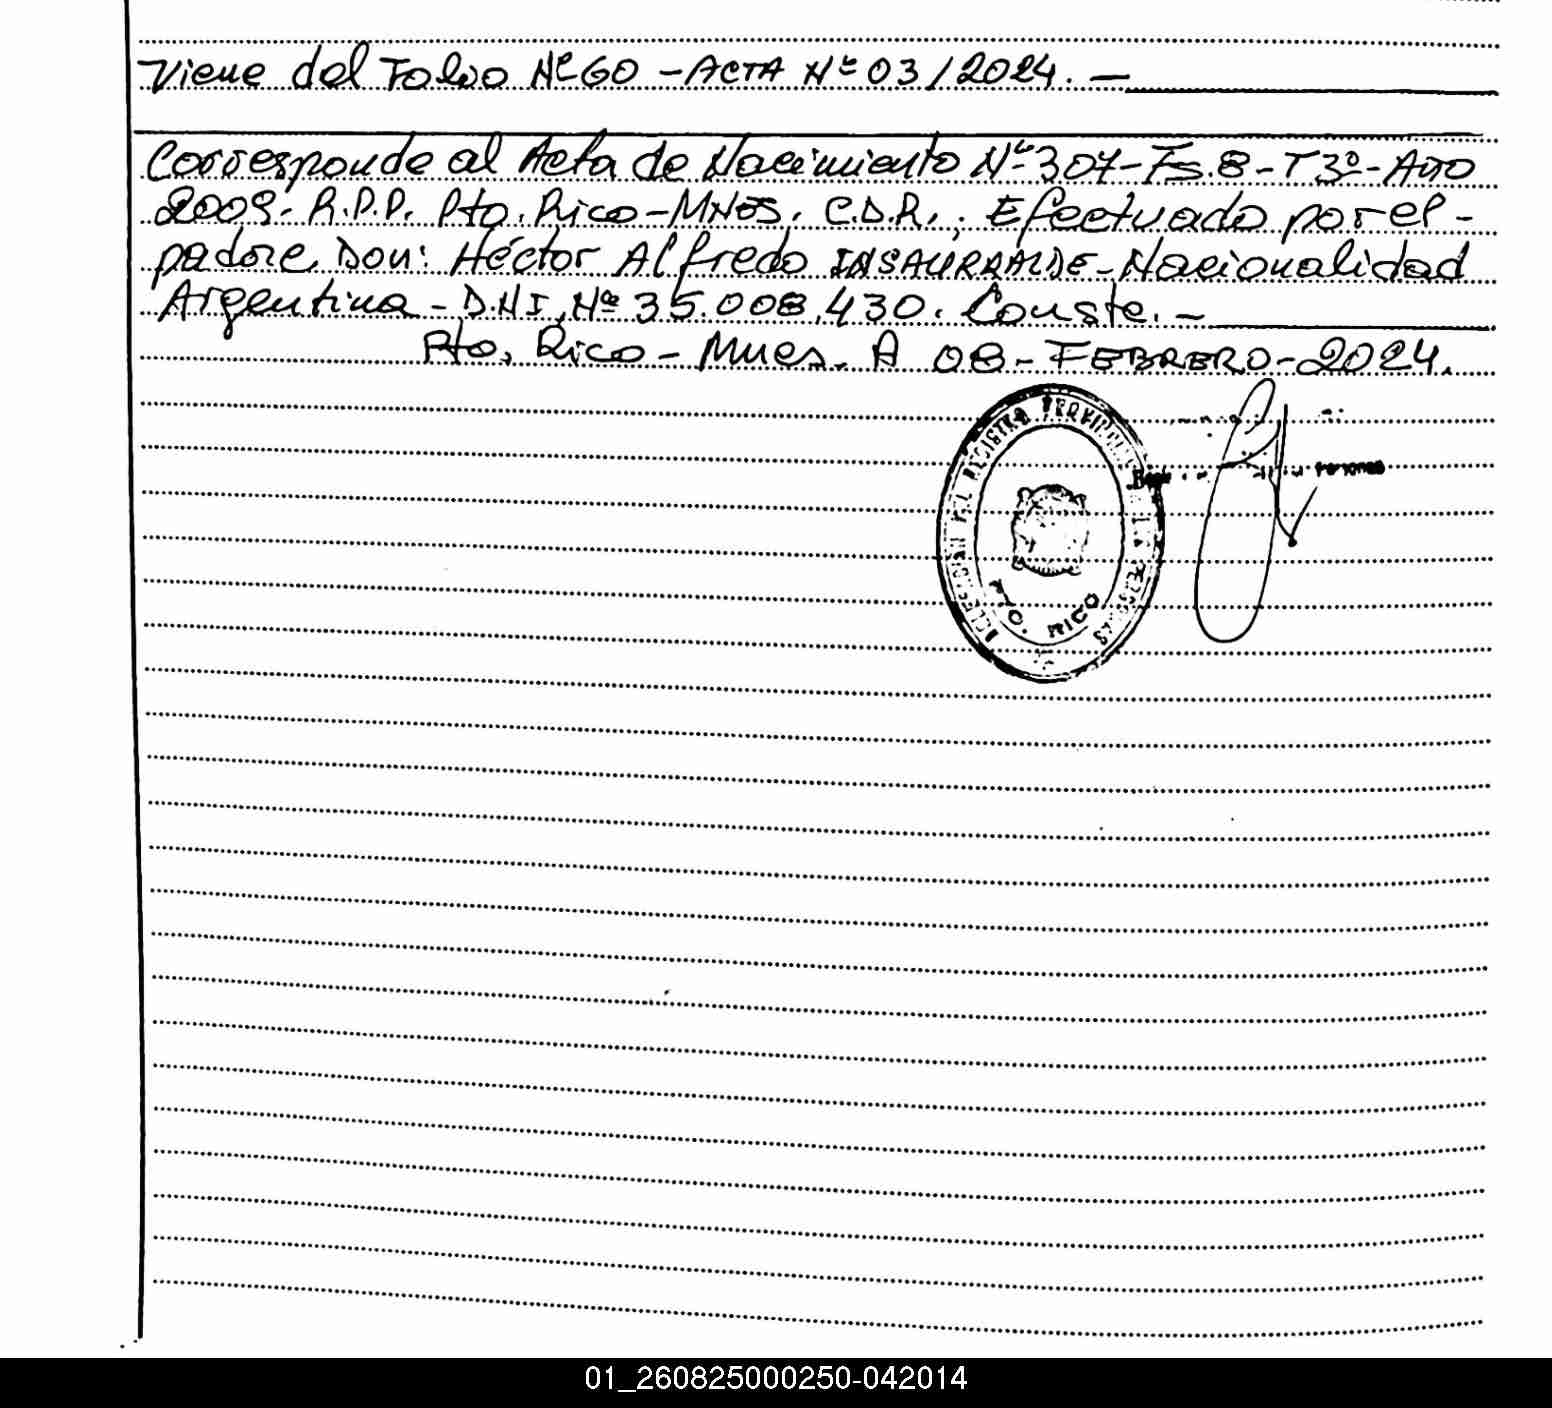 Viene del Folio Nº 60 - ACTA Nº 03/2024. -
Corresponde al Acta de Nacimiento Nº 307 - Fs. 8 - T 3º - Año
2009 - R.P.P. Pto. Rico - MNES. C.D.R., Efectuado por el -
padre Don: Héctor Alfredo INSAURRALDE - Nacionalidad
Argentina - D.N.I. Nº 35.008.430. Conste. -
Pto. Rico - Mnes. A 08 - FEBRERO - 2024.
DEL REGISTRO PROVINCIAL DE LAS PERSONAS
PTO. RICO
Personas
01_260825000250-042014